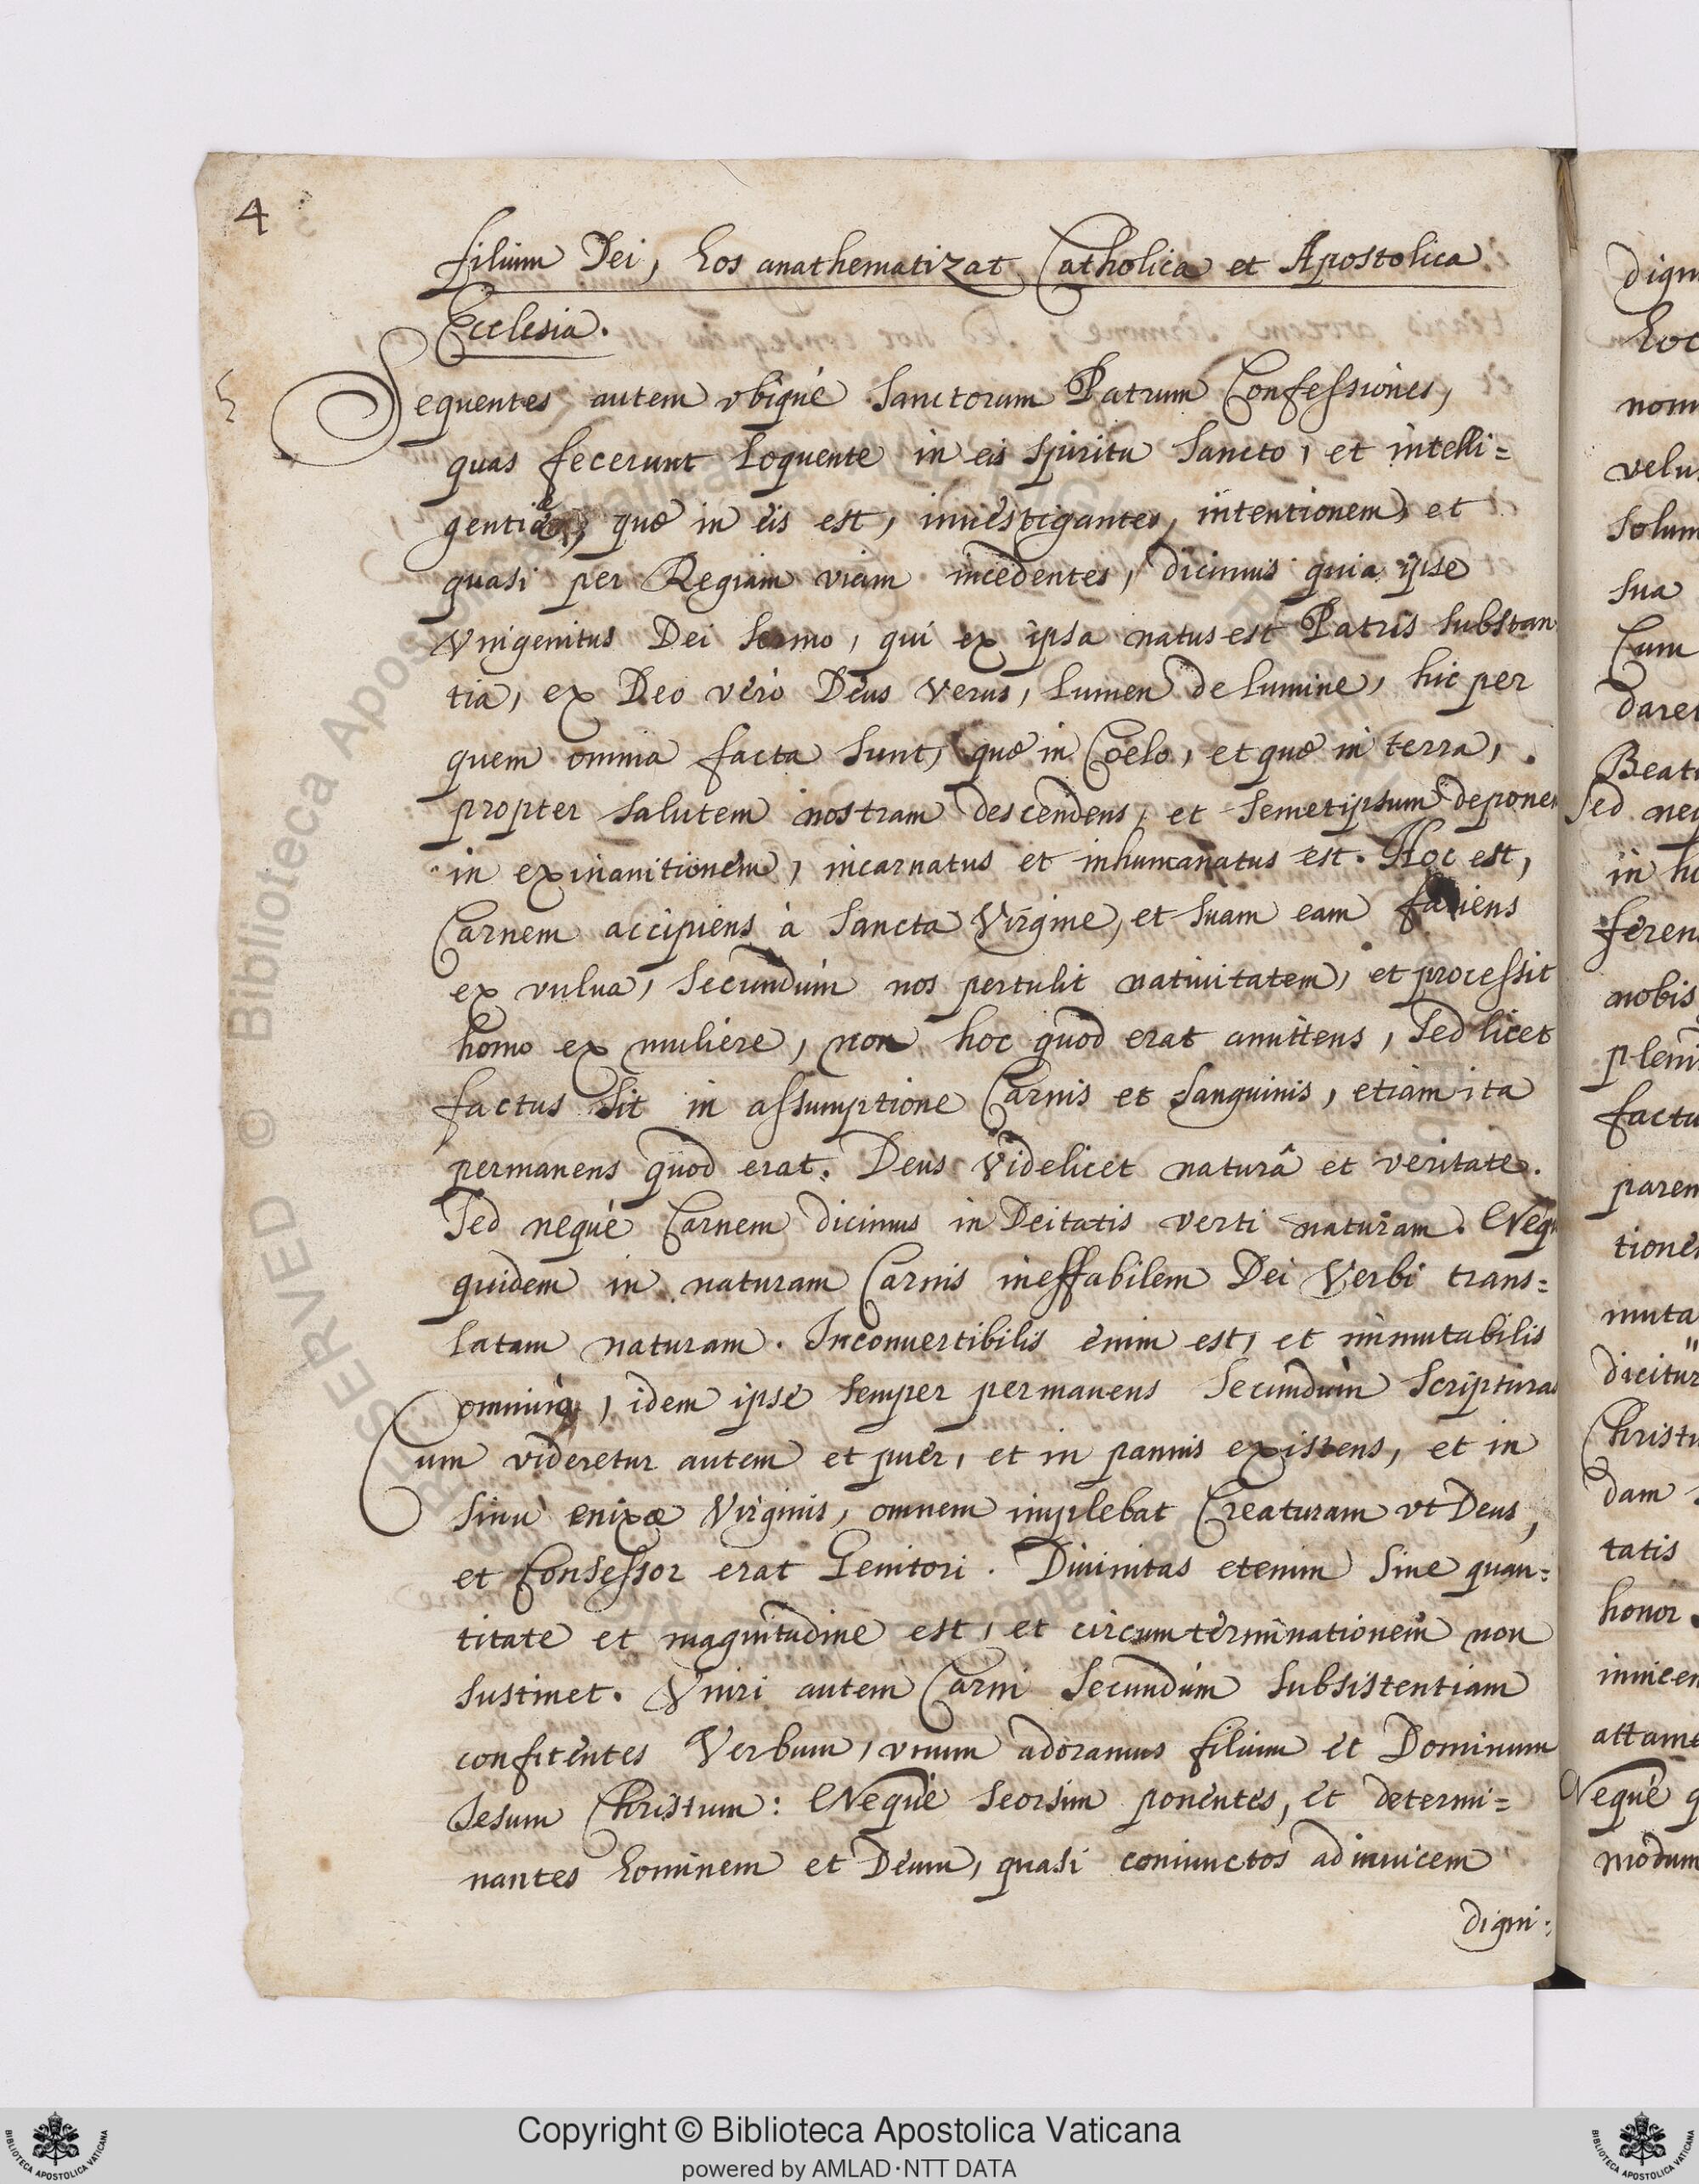 4
filium Dei, hos anathematizat Catholica et Apostolica
Ecclesia.
Sequentes autem vbiquè Sanctorum Patrum Confessiones,
quas fecerunt loquente in eis Spiritu Sancto, et intelli=
gentiæ, quæ in eis est, inuestigantes, intentionem, et
quasi per Regiam viam incedentes, dicimus quia ipse
Vnigenitus Dei Sermo, qui ex ipsa natus est Patris substan
tia, ex Deo vero Deus Verus, lumen de lumine, hic per
quem omnia facta sunt, quæ in Coelo, et quæ in terra,
propter salutem nostram descendens, et semetipsum deponen
in exinanitionem, incarnatus et inhumanatus est. Hoc est,
Carnem accipiens à Sancta Virgine, et suam eam faciens
ex vulua, secundùm nos pertulit natiuitatem, et processit
homo ex muliere, non hoc quod erat amittens, Sed licet
factus sit in assumptione Carnis et Sanguinis, etiam ita
permanens quod erat. Deus videlicet naturâ et veritate.
Sed neque Carnem dicimus in Deitatis verti naturam. Nequ
quidem in naturam Carnis ineffabilem Dei Verbi trans=
latam naturam. Inconuertibilis enim est, et immutabilis
, idem ipse semper permanens Secundùm Scripturas
Cum videretur autem et puer, et in pannis existens, et in
sinu enixæ Virginis, omnem implebat Creaturam vt Deus,
et Consessor erat Genitori. Diuinitas etenim sine quan=
titate et magnitudine est, et circumterminationem non
sustinet. Vniri autem Carni Secundùm subsistentiam
confitentes Verbum, vnum adoramus filium et Dominum
Jesum Christum: Neque seorsim ponentes, et determi=
nantes hominem et Deum, quasi coniunctos adinuicem
digni:
dign
hoc
nom
velu
solum
sua
Cum
dare
Beat
Sed neq
in hu
feren
nobis
pleni
factu
paren
tione
muta
dicitur
Christu
dam
tatis
honor
inuicem
attame
Neque q
modum
RESERVED © Biblioteca Apostolica Vaticana
Copyright © Biblioteca Apostolica Vaticana
powered by AMLAD·NTT DATA
BIBLIOTECA APOSTOLICA VATICANA
BIBLIOTECA APOSTOLICA VATICANA